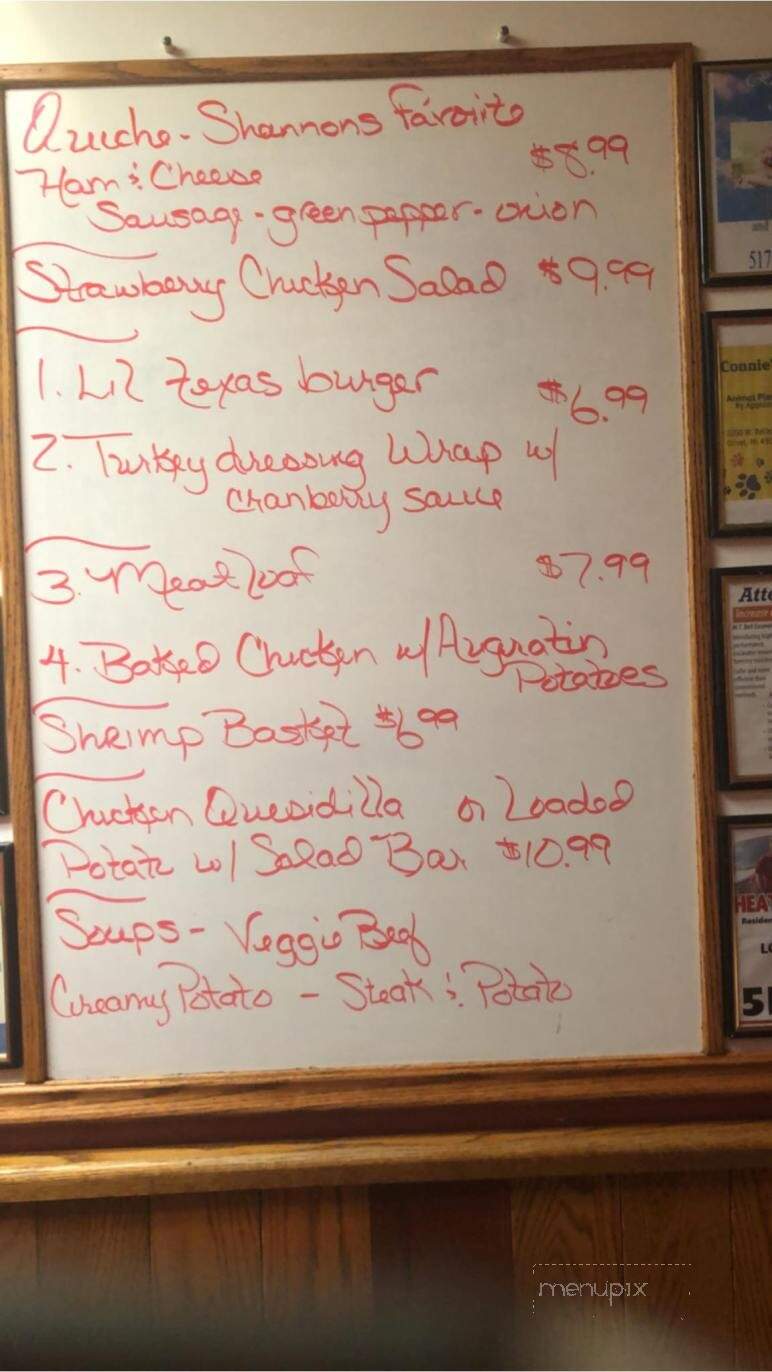 Quiche - Shannons Favorite
$8.99
Ham & Cheese
Sausage - green pepper - onion
Strawberry Chicken Salad $9.99
1. Lil Texas burger
$6.99
2. Turkey dressing Wrap w/
cranberry sauce
3. Meat loaf $7.99
4. Baked Chicken w/ Augratin
Potatoes
Shrimp Basket $6.99
Chicken Quesidilla or Loaded
Potato w/ Salad Bar $10.99
Soups - Veggie Beef
Creamy Potato - Steak & Potato
517
Connie'
Atte
HEA
Reside
LO
51
menupix